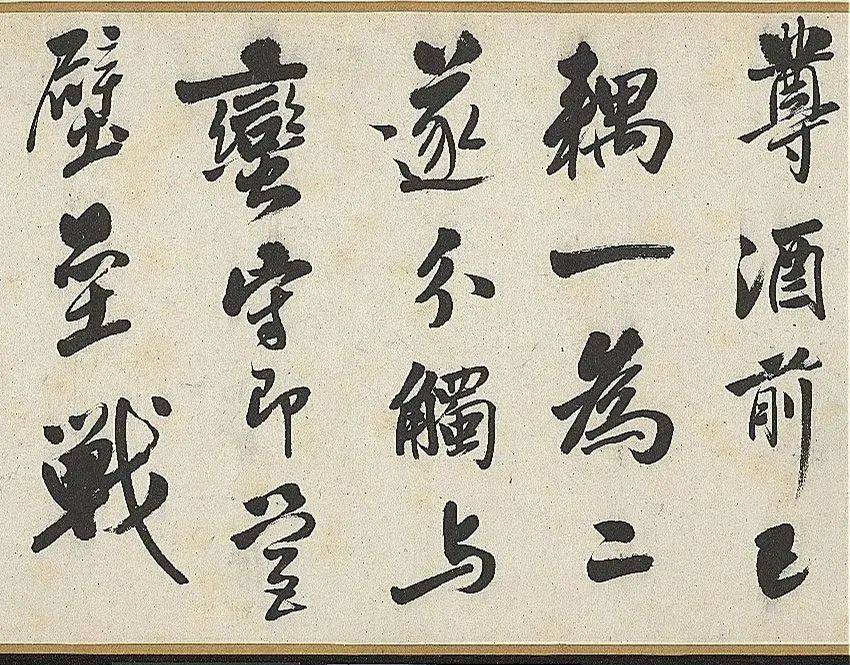 尊酒前已
耦一為二
遂分觸与
蠻守即營
壁壘戰